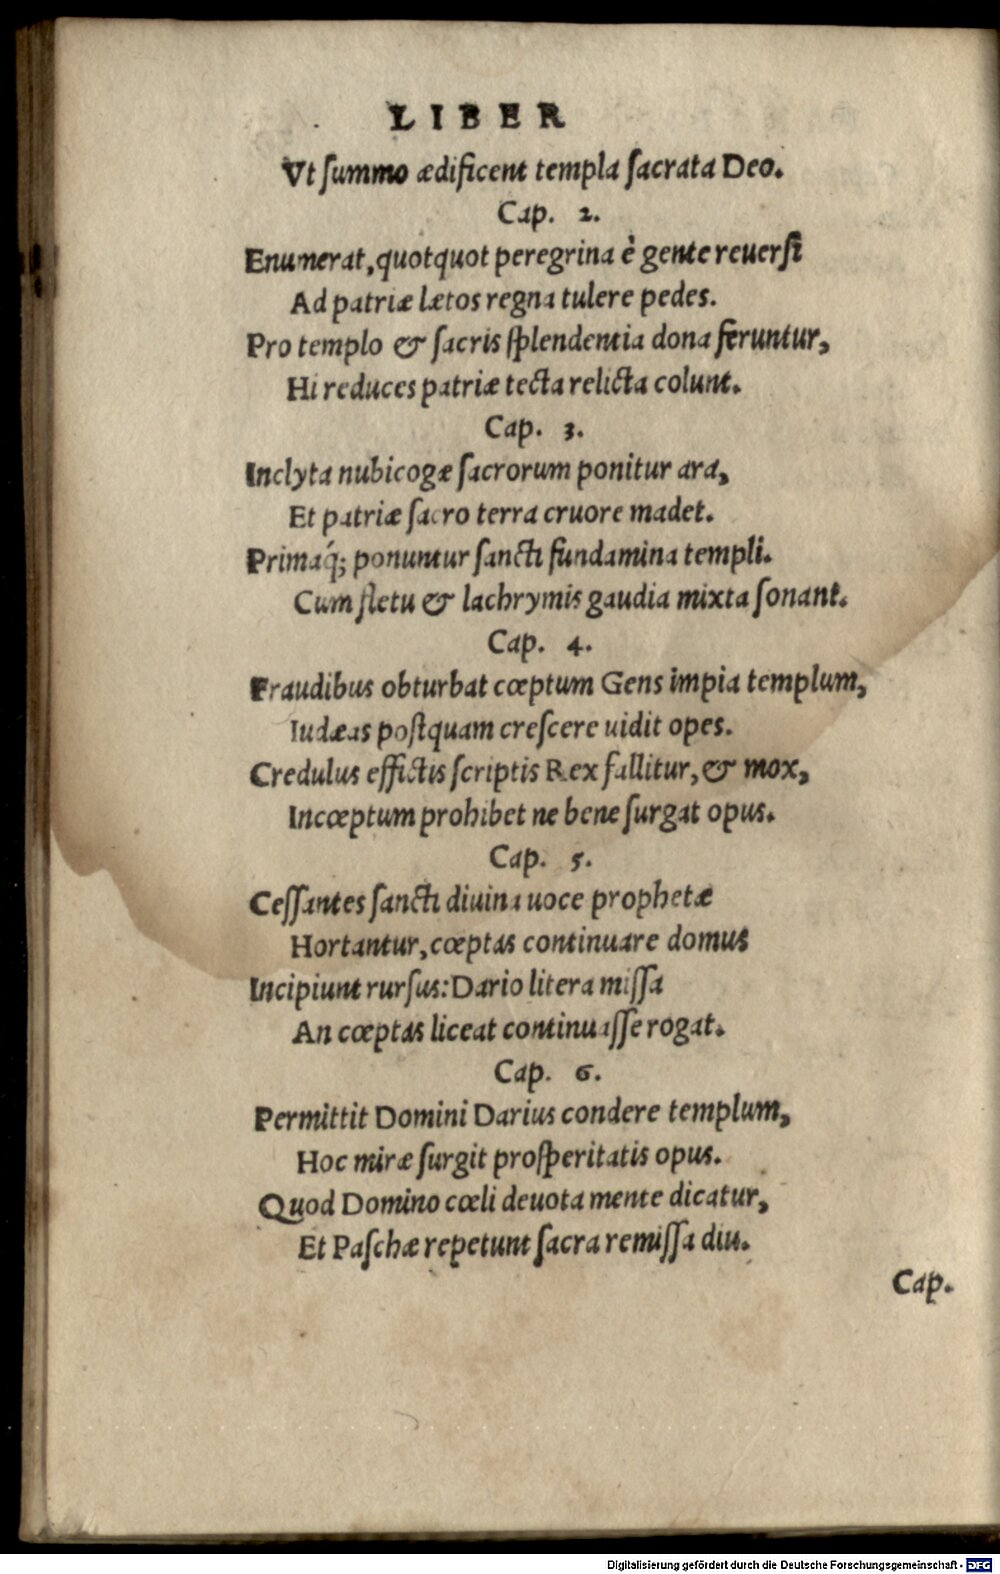 LIBER
Vt ſummo ædificent templa ſacrata Deo.
Cap. 2.
Enumerat, quotquot peregrina è gente reuerſi
Ad patriæ lætos regna tulere pedes.
Pro templo & ſacris ſplendentia dona feruntur,
Hi reduces patriæ tecta relicta colunt.
Cap. 3.
Inclyta nubicogæ ſacrorum ponitur ara,
Et patriæ ſacro terra cruore madet.
Primaq́; ponuntur ſancti fundamina templi.
Cum fletu & lachrymis gaudia mixta ſonant.
Cap. 4.
Fraudibus obturbat cœptum Gens impia templum,
Iudæas poſtquam creſcere uidit opes.
Credulus effictis ſcriptis Rex fallitur, & mox,
Incœptum prohibet ne bene ſurgat opus.
Cap. 5.
Ceſſantes ſancti diuina uoce prophetæ
Hortantur, cœptas continuare domus
Incipiunt rurſus: Dario litera miſſa
An cœptas liceat continuaſſe rogat.
Cap. 6.
Permittit Domini Darius condere templum,
Hoc miræ ſurgit proſperitatis opus.
Quod Domino cœli deuota mente dicatur,
Et Paſchæ repetunt ſacra remiſſa diu.
Cap.
Digitalisierung gefördert durch die Deutsche Forschungsgemeinschaft - DFG